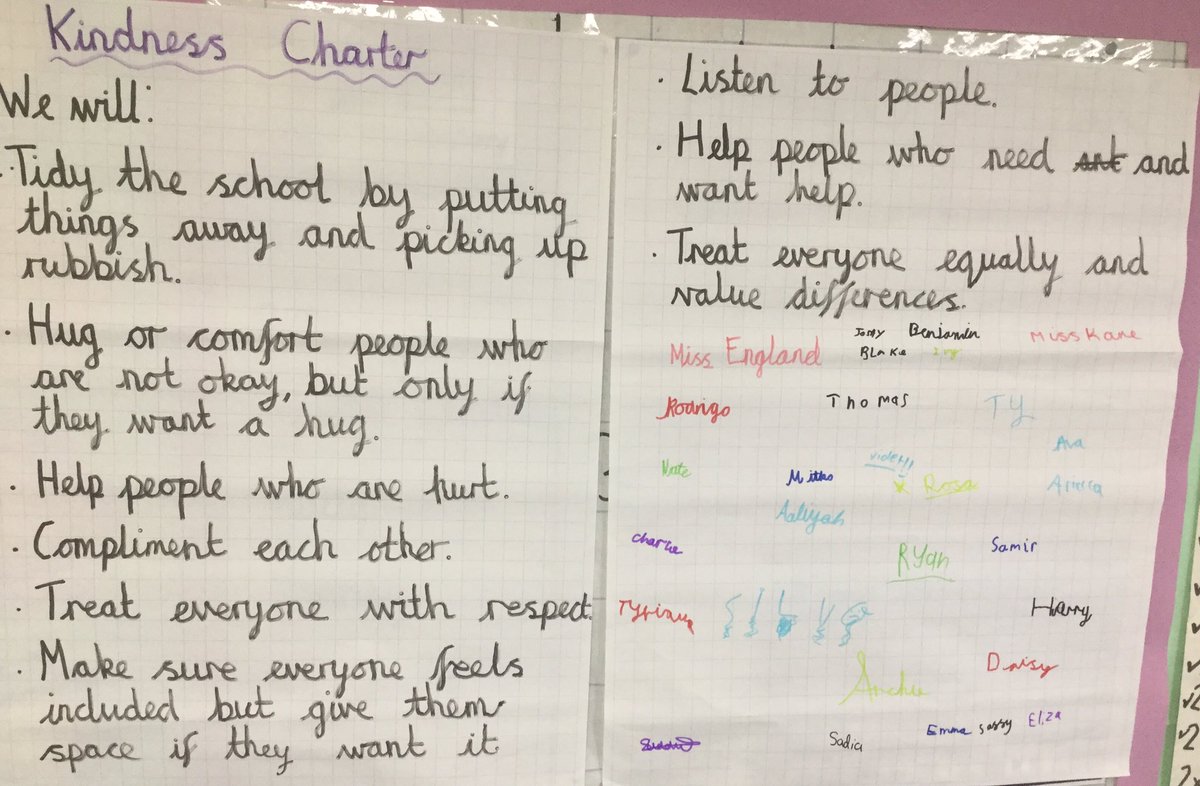 Kindness Charter
We will:
· Tidy the school by putting
things away and picking up
rubbish.
· Hug or comfort people who
are not okay, but only if
they want a hug.
· Help people who are hurt.
· Compliment each other.
· Treat everyone with respect.
· Make sure everyone feels
included but give them
space if they want it
· Listen to people.
· Help people who need and
want help.
· Treat everyone equally and
value differences.
Miss England
Benjamin
Miss Kane
Blake
Rodrigo
Thomas
TY
Ava
Nate
Rosa
Aaliyah
Charlie
Ryan
Samir
Harry
Archie
Daisy
Sadia
Emma
Sassy
Eliza